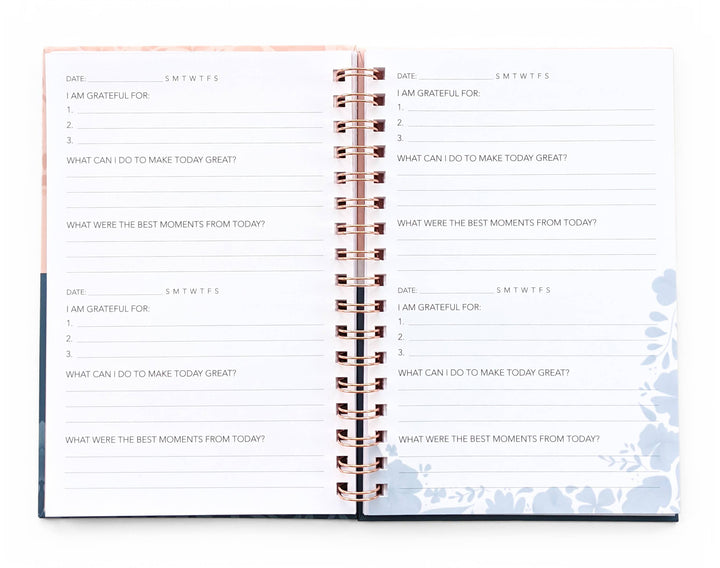 DATE: S M T W T F S
I AM GRATEFUL FOR:
1.
2.
3.
WHAT CAN I DO TO MAKE TODAY GREAT?
WHAT WERE THE BEST MOMENTS FROM TODAY?
DATE: S M T W T F S
I AM GRATEFUL FOR:
1.
2.
3.
WHAT CAN I DO TO MAKE TODAY GREAT?
WHAT WERE THE BEST MOMENTS FROM TODAY?
DATE: S M T W T F S
I AM GRATEFUL FOR:
1.
2.
3.
WHAT CAN I DO TO MAKE TODAY GREAT?
WHAT WERE THE BEST MOMENTS FROM TODAY?
DATE: S M T W T F S
I AM GRATEFUL FOR:
1.
2.
3.
WHAT CAN I DO TO MAKE TODAY GREAT?
WHAT WERE THE BEST MOMENTS FROM TODAY?